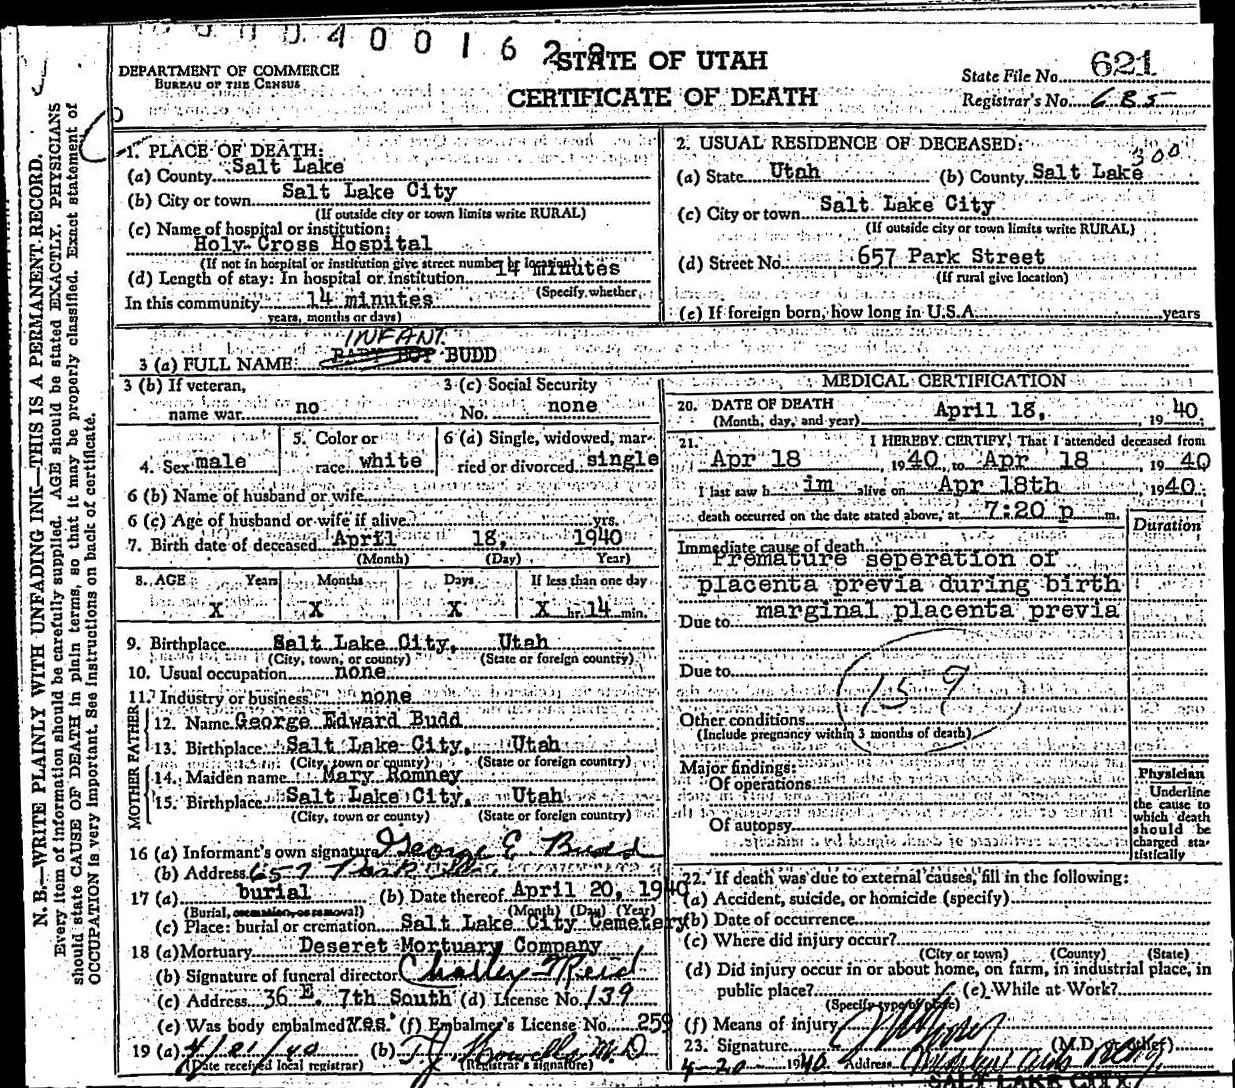 0 0 0 4 0 0 1 6 2
DEPARTMENT OF COMMERCE
BUREAU OF THE CENSUS
STATE OF UTAH
CERTIFICATE OF DEATH
State File No. 621
Registrar's No. 685
N. B.—WRITE PLAINLY WITH UNFADING INK—THIS IS A PERMANENT RECORD.
Every item of information should be carefully supplied. AGE should be stated EXACTLY. PHYSICIANS
should state CAUSE OF DEATH in plain terms, so that it may be properly classified. Exact statement of
OCCUPATION is very important. See instructions on back of certificate.
1. PLACE OF DEATH:
(a) County Salt Lake
(b) City or town Salt Lake City
(If outside city or town limits write RURAL)
(c) Name of hospital or institution:
Holy Cross Hospital
(If not in hospital or institution give street number or location)
(d) Length of stay: In hospital or institution 14 minutes
(Specify whether
In this community 14 minutes
years, months or days)
2. USUAL RESIDENCE OF DECEASED:
300
(a) State Utah (b) County Salt Lake
(c) City or town Salt Lake City
(If outside city or town limits write RURAL)
(d) Street No. 657 Park Street
(If rural give location)
(e) If foreign born, how long in U.S.A. years
INFANT
3 (a) FULL NAME: BABY BOY BUDD
3 (b) If veteran, 3 (c) Social Security
name war no No. none
4. Sex male 5. Color or race white 6 (a) Single, widowed, married or divorced single
6 (b) Name of husband or wife
6 (c) Age of husband or wife if alive yrs.
7. Birth date of deceased April 18, 1940
(Month) (Day) Year)
8. AGE Years Months Days If less than one day
X X X X hr. 14 min.
9. Birthplace Salt Lake City, Utah
(City, town, or county) (State or foreign country)
10. Usual occupation none
11. Industry or business none
FATHER
12. Name George Edward Budd
13. Birthplace Salt Lake City, Utah
(City, town or county) (State or foreign country)
MOTHER
14. Maiden name Mary Romney
15. Birthplace Salt Lake City, Utah
(City, town, or county) (State or foreign country)
16 (a) Informant's own signature George E Budd
(b) Address 657 Park
17 (a) burial (b) Date thereof April 20, 1940
(Burial, cremation, or removal) (Month) (Day) (Year)
(c) Place: burial or cremation Salt Lake City Cemetery
18 (a) Mortuary Deseret Mortuary Company
(b) Signature of funeral director Charley Reid
(c) Address 36 E. 7th South (d) License No. 139
(e) Was body embalmed? Yes. (f) Embalmer's License No. 259
19 (a) 4/21/40 (b) T. J. Howells M.D
(Date received local registrar) (Registrar's signature)
MEDICAL CERTIFICATION
20. DATE OF DEATH April 18, 1940
(Month, day, and year)
21. I HEREBY CERTIFY, That I attended deceased from
Apr 18, 1940, to Apr 18, 1940
I last saw h im alive on Apr 18th, 1940;
death occurred on the date stated above, at 7:20 p m.
Duration
Immediate cause of death
Premature seperation of
placenta previa during birth
Due to marginal placenta previa
Due to
159
Other conditions
(Include pregnancy within 3 months of death)
Major findings:
Of operations
Of autopsy
Physician
Underline
the cause to
which death
should be
charged sta-
tistically
22. If death was due to external causes, fill in the following:
(a) Accident, suicide, or homicide (specify)
(b) Date of occurrence
(c) Where did injury occur?
(City or town) (County) (State)
(d) Did injury occur in or about home, on farm, in industrial place, in
public place? (e) While at Work?
(Specify type of place)
(f) Means of injury
23. Signature (M.D. or other)
4-20 1940 Address
SALT LAKE CITY